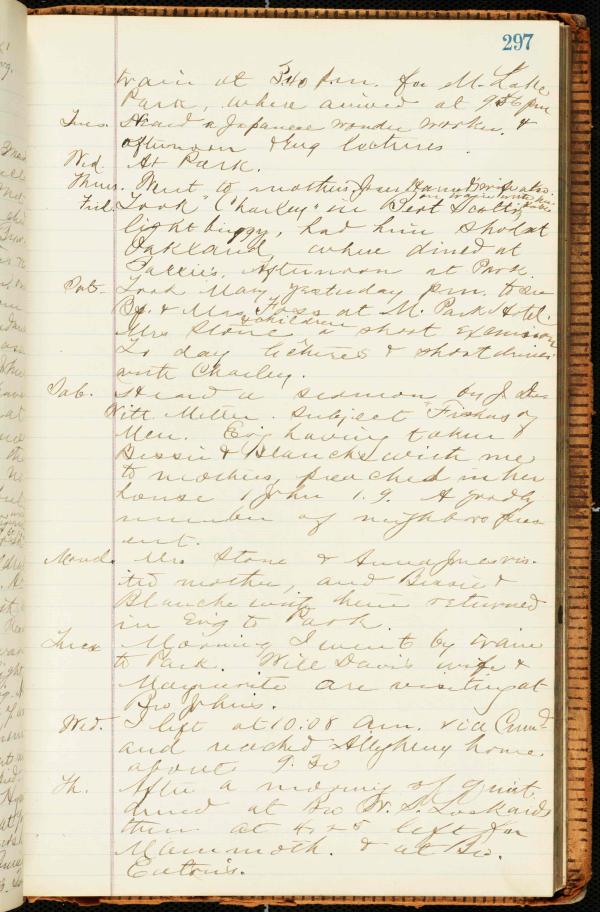 297
train at 3.40 p.m. for M. Lake
Park, where arrived at 9.56 pm
Tues. Heard a Japanese wonder worker, &
afternoon & Evg lectures.
Wed. At Park.
Thurs. Went to mothers, 
Frid. Took "Charley" in Bert
light buggy, had him shod at
Oakland where dined at
Afternoon at Park.
Sat. Took Mary yesterday p.m. to see
& Mrs. Foss at M. Park Hotel.
Mrs Stone & children a short
To day lectures & short drives
with Charley.
Sab. Heard a sermon by J.
Witt. Subject "Fishers of
Men. Evg having taken
Bessie & Blanche with me
to mothers, preached in her
house 1 John 1.9. A goodly
number of neighbors pres
ent.
Mond. Mrs Stone & Anna Jones vis-
ited mother, and Bessie &
Blanche with him returned
in Evg to Park.
Tues Morning I went by train
to Park. Will Davis wife &
Marguerite are visiting at
Bro John's.
Wed. I left at 10:08 a.m. via Cumbd
and reached Allegheny home
about 9.30
Th. After a morning of quiet
dined at Bro W. S. Lockards
then at 4.25 left for
Mammoth. & at Bro.
Eaton's.